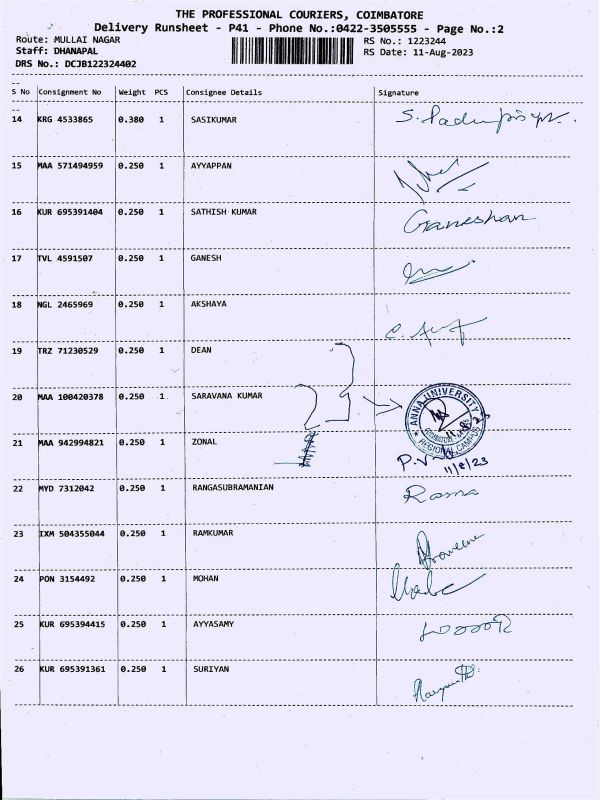 THE PROFESSIONAL COURIERS, COIMBATORE
Delivery Runsheet - P41 - Phone No.:0422-3505555 - Page No.:2
Route: MULLAI NAGAR RS No.: 1223244
Staff: DHANAPAL RS Date: 11-Aug-2023
DRS No.: DCJB122324402
S No Consignment No Weight PCS Consignee Details Signature
14 KRG 4533865 0.380 1 SASIKUMAR
15 MAA 571494959 0.250 1 AYYAPPAN
16 KUR 695391404 0.250 1 SATHISH KUMAR Ganeshan
17 TVL 4591507 0.250 1 GANESH
18 NGL 2465969 0.250 1 AKSHAYA
19 TRZ 71230529 0.250 1 DEAN
20 MAA 100420378 0.250 1 SARAVANA KUMAR
ANNA UNIVERSITY
REGIONAL CAMPUS
21 MAA 942994821 0.250 1 ZONAL
11/8/23
22 MYD 7312042 0.250 1 RANGASUBRAMANIAN Rama
23 IXM 504355044 0.250 1 RAMKUMAR
24 PON 3154492 0.250 1 MOHAN
25 KUR 695394415 0.250 1 AYYASAMY
26 KUR 695391361 0.250 1 SURIYAN